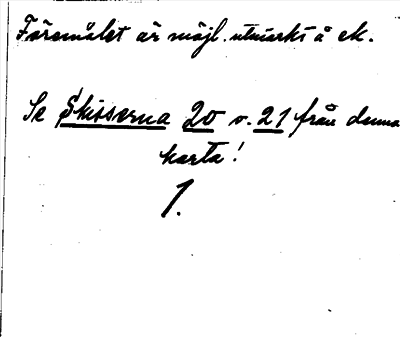 Föremålet är möjl. utmärkt å ek.
Se Skisserna 20 o. 21 från denna
karta!
1.